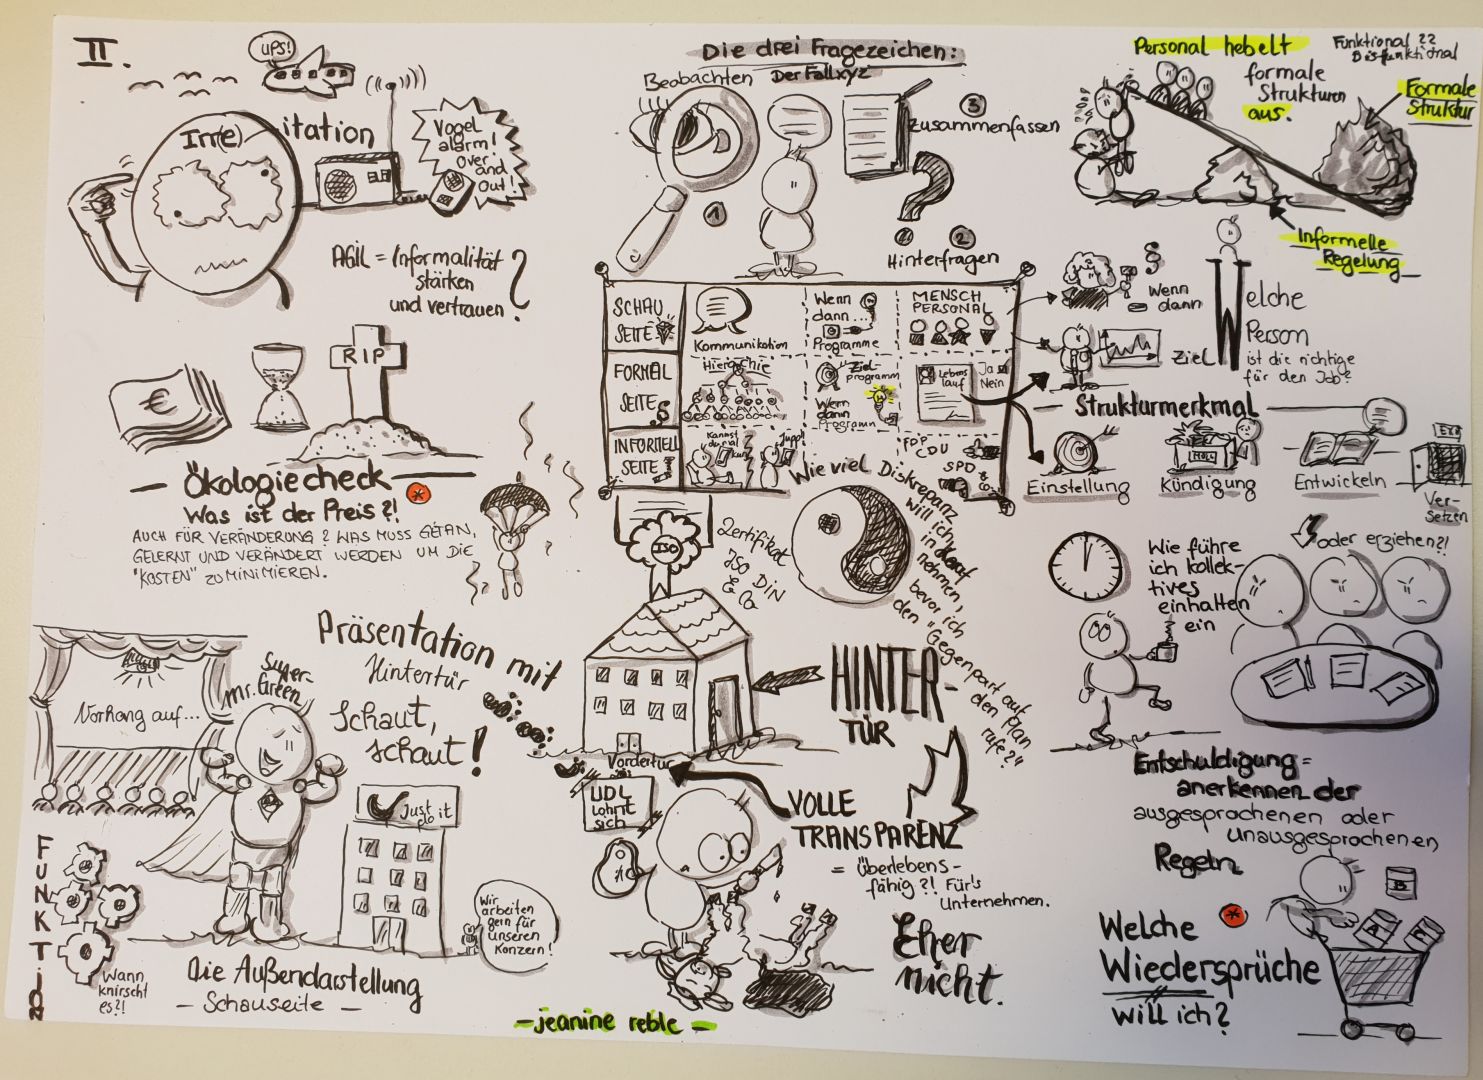 II.
ups!
Irr(e)
itation
Vogel
alarm!
Over
and
Out!
AGIL = Informalität
stärken
und vertrauen?
€
RIP
Ökologiecheck
Was ist der Preis?!
AUCH FÜR VERÄNDERUNG? WAS MUSS GETAN,
GELERNT UND VERÄNDERT WERDEN UM DIE
"KOSTEN" ZU MINIMIEREN.
Die drei Fragezeichen:
Der Fall xyz
Beobachten
1
3
Zusammenfassen
2
Hinterfragen
SCHAU
SEITE
Kommunikation
Wenn
dann...
Programme
MENSCH
PERSONAL
FORMAL
SEITE
Hierarchie
Ziel-
programm
Wenn
dann
Programm
Lebens
lauf
Ja
Nein
INFORMELL
SEITE
Kannst
du mal
Jupp!
FDP
CDU
SPD
Personal hebelt
formale
Strukturen
aus.
Funktional ??
Disfunktional
Formale
Struktur
Informelle
Regelung
§
Wenn
dann
Ziel
Welche
Person
ist die richtige
für den Job?
Strukturmerkmal
Einstellung
Kündigung
Entwickeln
Ver-
setzen
oder erziehen?!
Wie führe
ich kollek-
tives
einhalten
ein
Wie viel Diskrepanz
will ich
in
nehmen,
bevor ich
den "Gegenpart auf
den Plan
rufe?"
ISO
Zertifikat
ISO DIN
& Co
Präsentation mit
Hintertür
Schaut,
schaut!
Super-
mr. Green
Vorhang auf...
Just
do it
Wir
arbeiten
gern für
unseren
Konzern!
Die Außendarstellung
- Schauseite -
FUNKTION
Wann
knirscht
es?!
HINTER-
TÜR
Vordertür
UDL
lohnt
sich
VOLLE
TRANSPARENZ
= Überlebens-
fähig?! Für's
Unternehmen.
Eher
nicht.
- jeanine reble -
Entschuldigung =
anerkennen der
ausgesprochenen oder
unausgesprochenen
Regeln
Welche
Wiedersprüche
will ich?
B
A